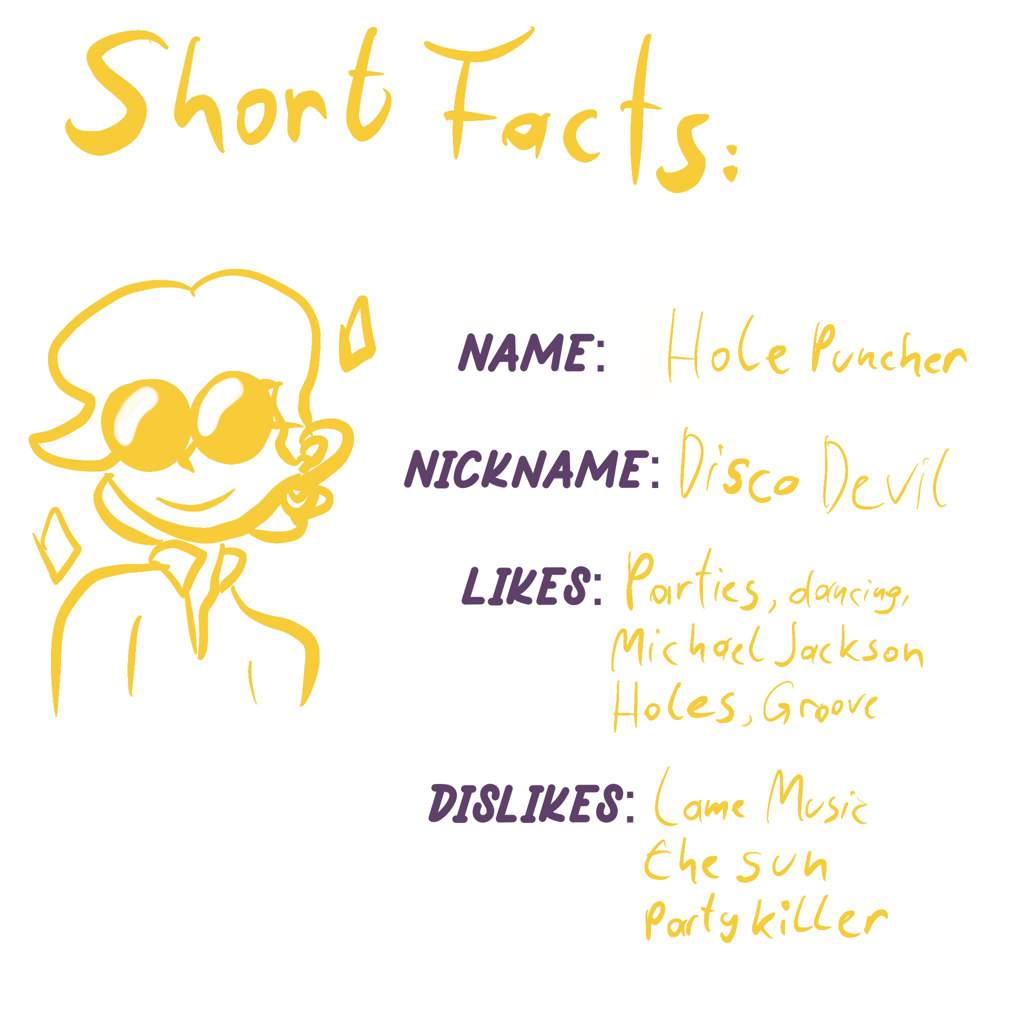 Short Facts:
NAME: Hole Puncher
NICKNAME: Disco Devil
LIKES: Parties, dancing,
Michael Jackson
Holes, Groove
DISLIKES: Lame Music
the sun
Party killer